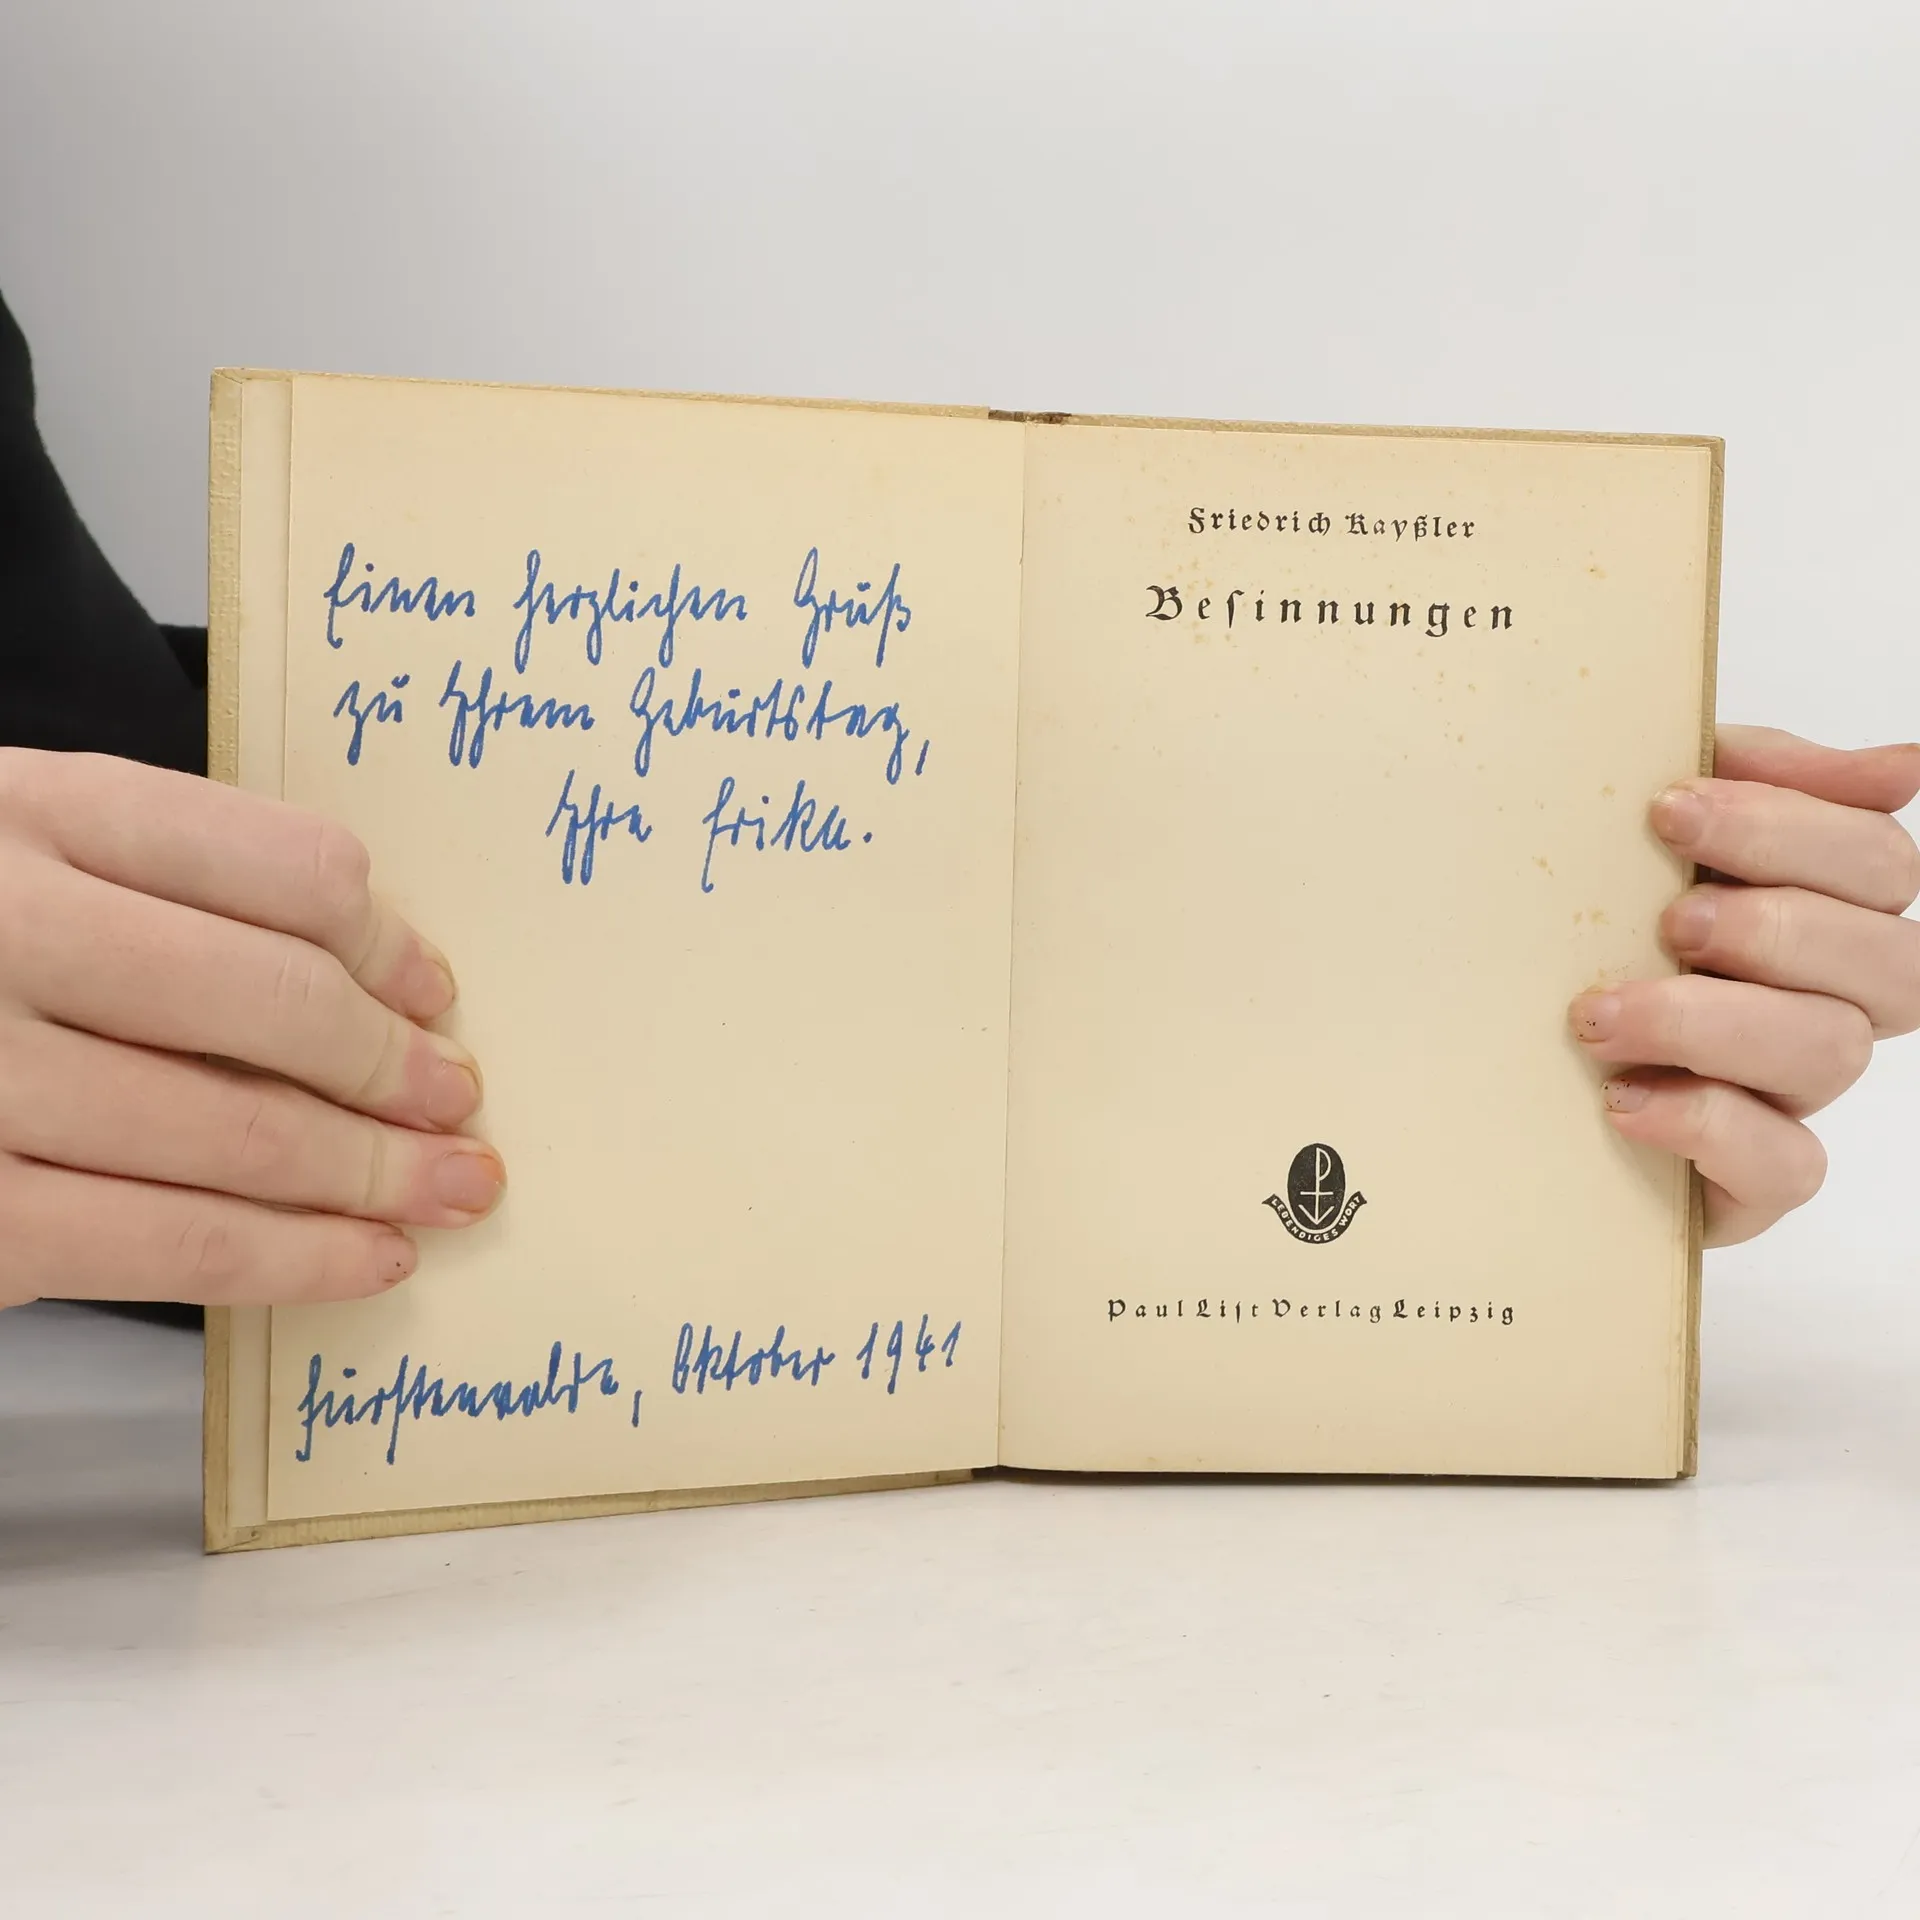 Einen herzlichen Gruß
zu Ihrem Geburtstag,
Ihre Erika.
Fürstenwalde, Oktober 1941
Friedrich Kayßler
Beſinnungen
LEBENDIGES WORT
Paul Liſt Verlag Leipzig